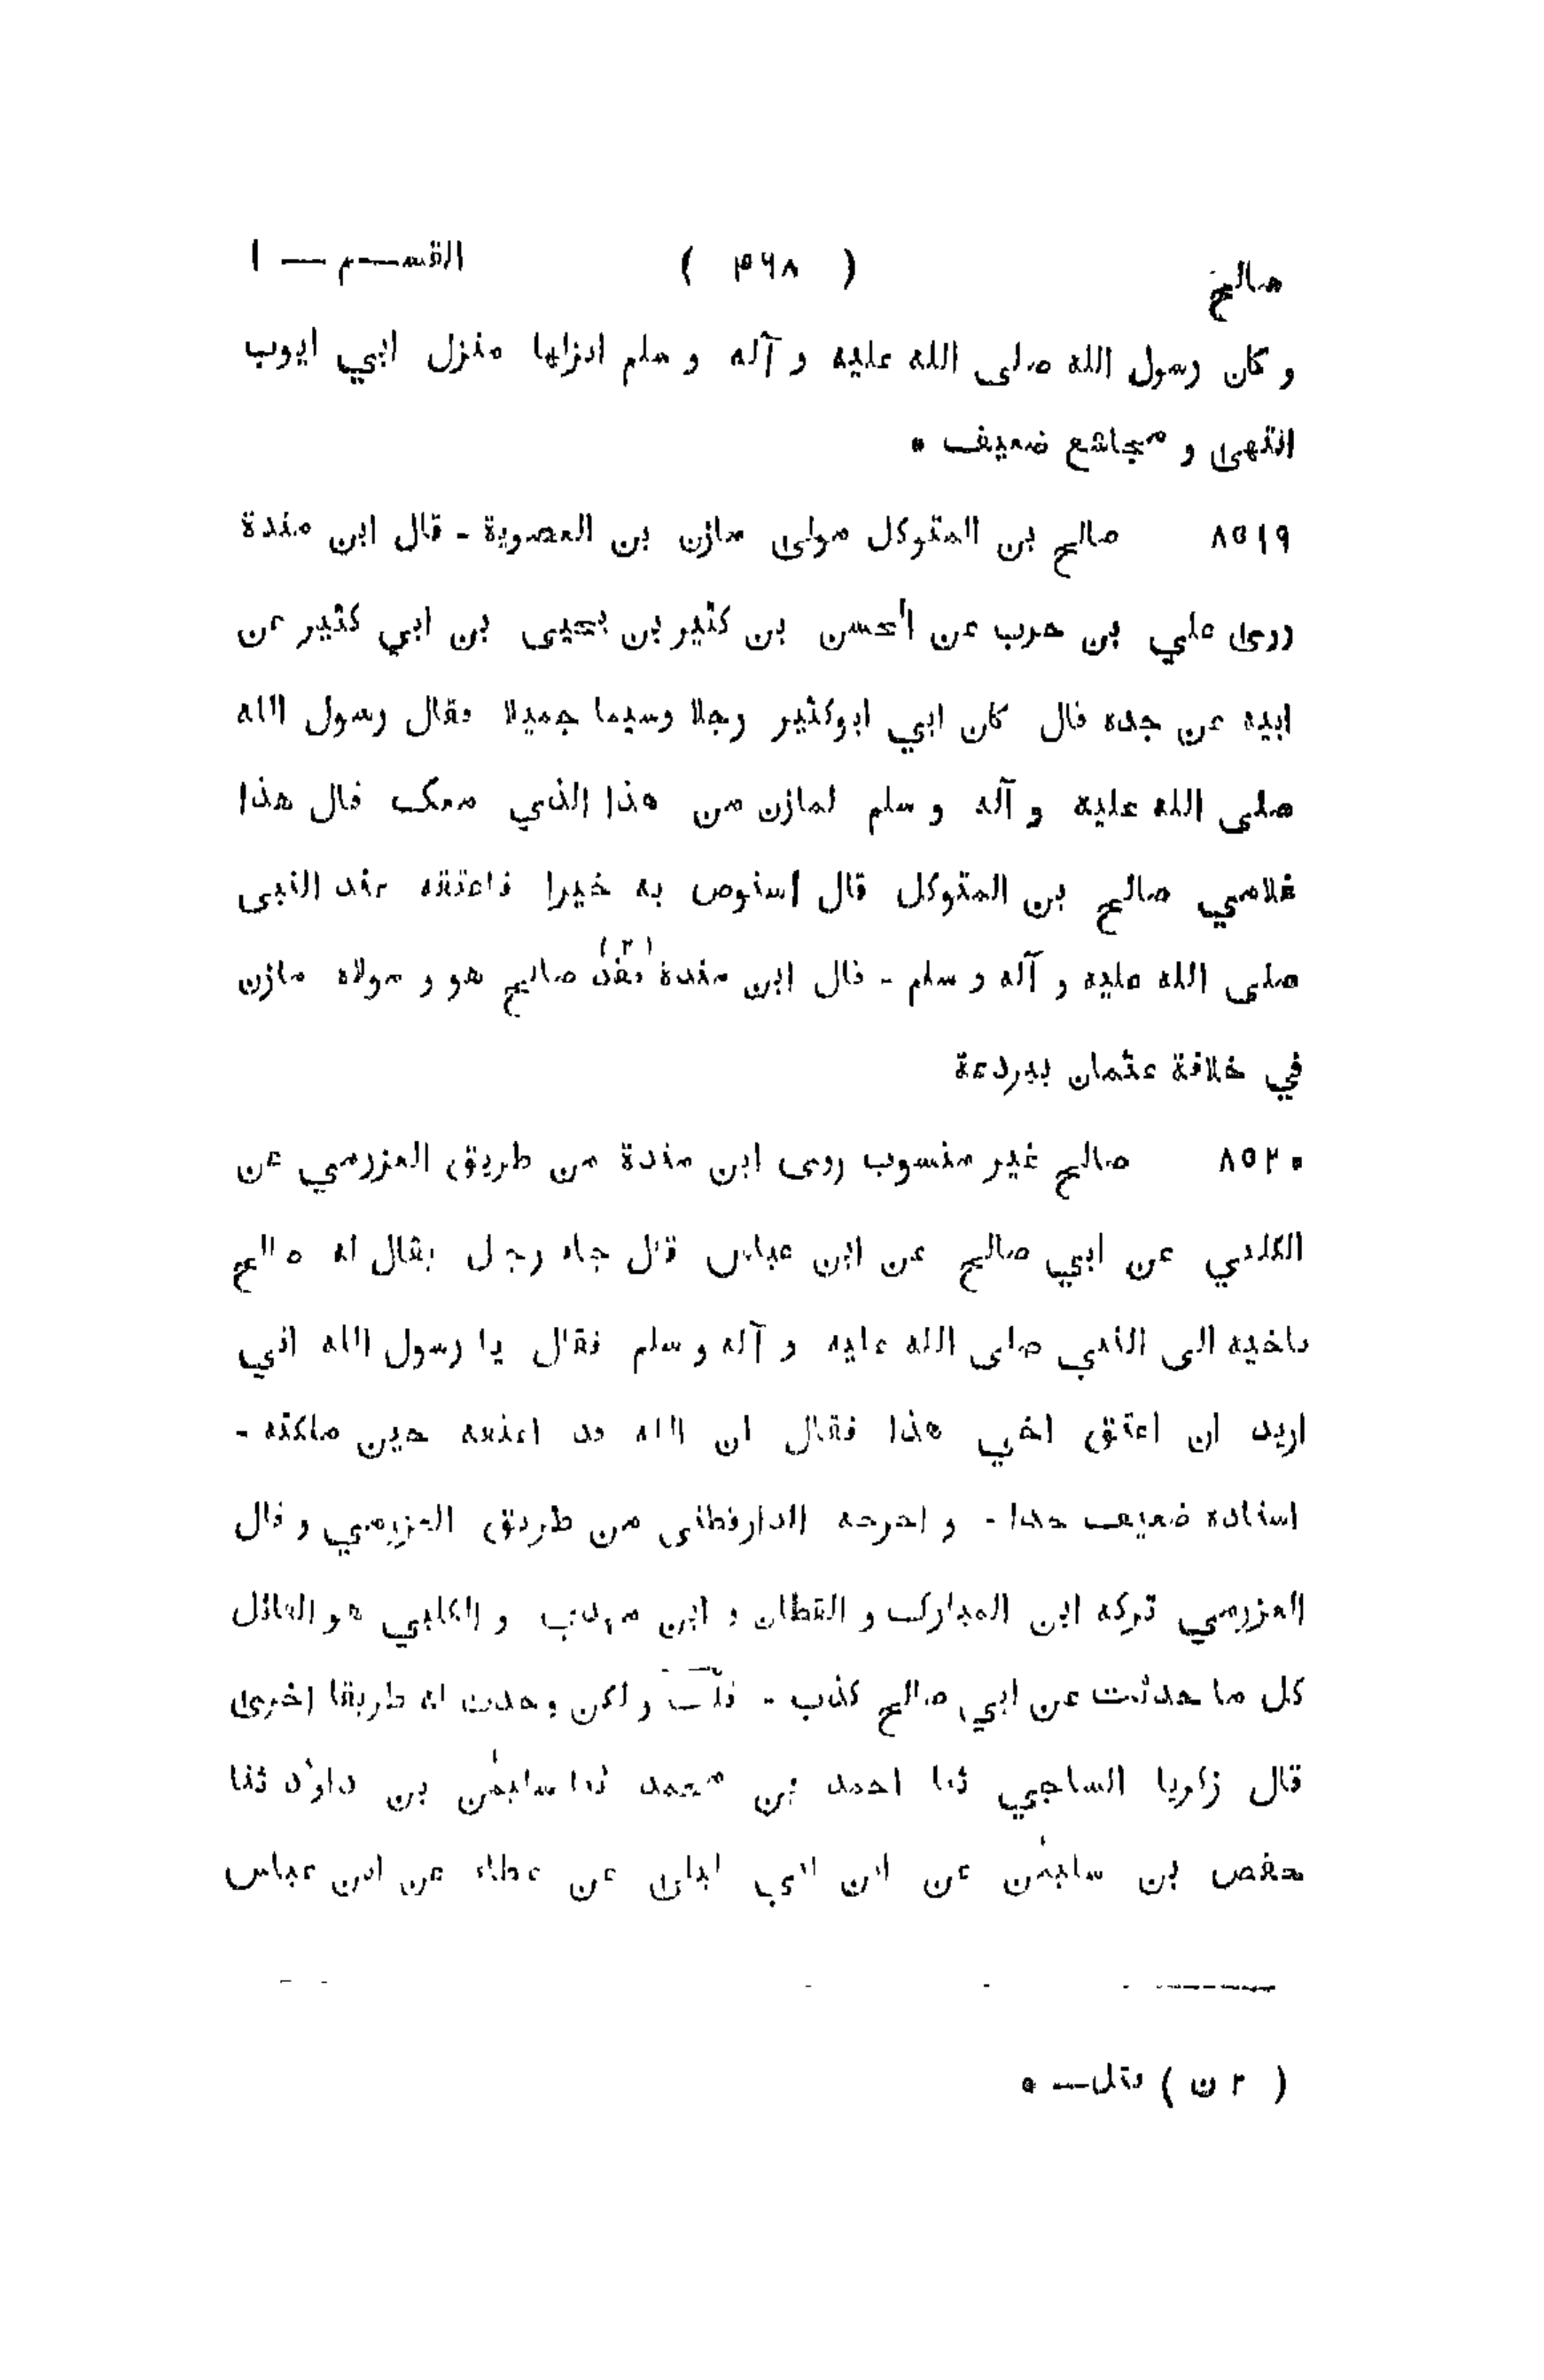 صالح ( ۴۶۸ ) القسم — ا
و كان رسول الله صلى الله عليه و آله و سلم انزلها منزل ابي ايوب
انتهى و مجاشع ضعيف •
٨٥١٩ صالح بن المتوكل مولى مازن بن الغضوبة - قال ابن مندة
روى علي بن حرب عن الحسن بن كثير بن يحيى بن ابي كثير عن
ابيه عن جده قال كان ابي ابو كثير رجلا وسيما جميلا فقال رسول الله
صلى الله عليه و آله و سلم لمازن من هذا الذي معك قال هذا
غلامي صالح بن المتوكل قال استوص به خيرا فاعتقه عند النبى
صلى الله عليه و آله و سلم - قال ابن مندة (٢) صالح هو و مولاه مازن
في خلافة عثمان ببردعة
٨٥٢٠ صالح غير منسوب روى ابن مندة من طريق العزرمي عن
الكلبي عن ابي صالح عن ابن عباس قال جاء رجل يقال له صالح
باخيه الى النبي صلى الله عليه و آله و سلم فقال يا رسول الله اني
اريد ان اعتق اخي هذا فقال ان الله قد اعتقه حين ملكته -
اسناده ضعيف جدا - و اخرجه الدارقطنى من طريق العزرمي و قال
العزرمي تركه ابن المبارك و القطان و ابن مهدي و الكلبي هو القائل
كل ما حدثت عن ابي صالح كذب - قلت و لكن وجدت له طريقا اخرى
قال زكريا الساجي ثنا احمد بن محمد ثنا سليمٰن بن داؤد ثنا
حفص بن سليمٰن عن ابن ابي ليلى عن عطاء عن ابن عباس
( ٢ ن ) قتل •